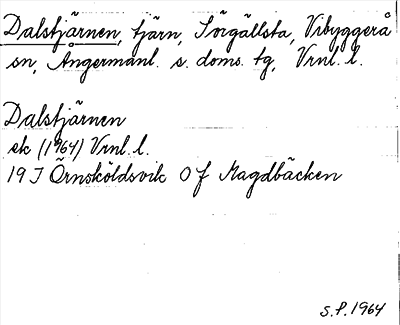 Dalstjärnen, tjärn, Sörgällsta, Vibyggerå
sn, Ångermanl. s. doms. tg, Vrnl. l.
Dalstjärnen
ek (1964) Vrnl. l.
19 J Örnsköldsvik O f Magdbäcken
S.P. 1964